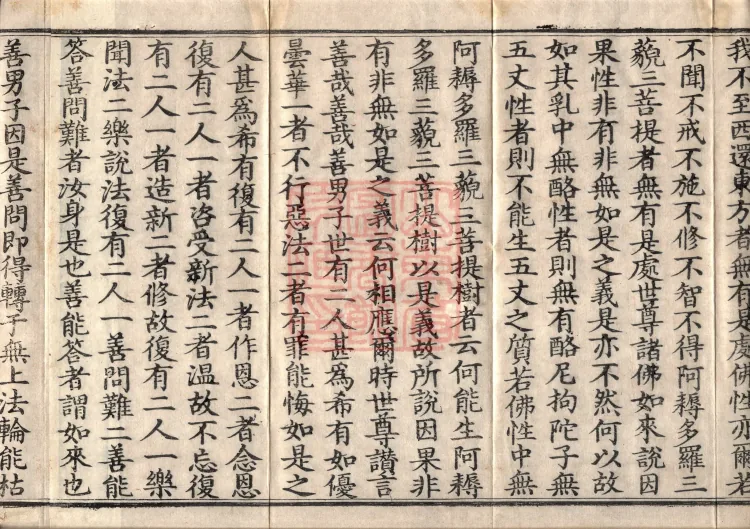 我不至西還東方者無有是處佛性亦爾若
不聞不戒不施不修不智不得阿耨多羅三
藐三菩提者無有是處世尊諸佛如來說因
果性非有非無如是之義是亦不然何以故
如其乳中無酪性者則無有酪尼拘陀子無
五丈性者則不能生五丈之質若佛性中無
阿耨多羅三藐三菩提樹者云何能生阿耨
多羅三藐三菩提樹以是義故所說因果非
有非無如是之義云何相應爾時世尊讚言
善哉善哉善男子世有二人甚為希有如優
曇華一者不行惡法二者有罪能悔如是之
人甚為希有復有二人一者作恩二者念恩
復有二人一者咨受新法二者溫故不忘復
有二人一者造新二者修故復有二人一樂
聞法二樂說法復有二人一善問難二善能
答善問難者汝身是也善能答者謂如來也
善男子因是善問即得轉于無上法輪能枯